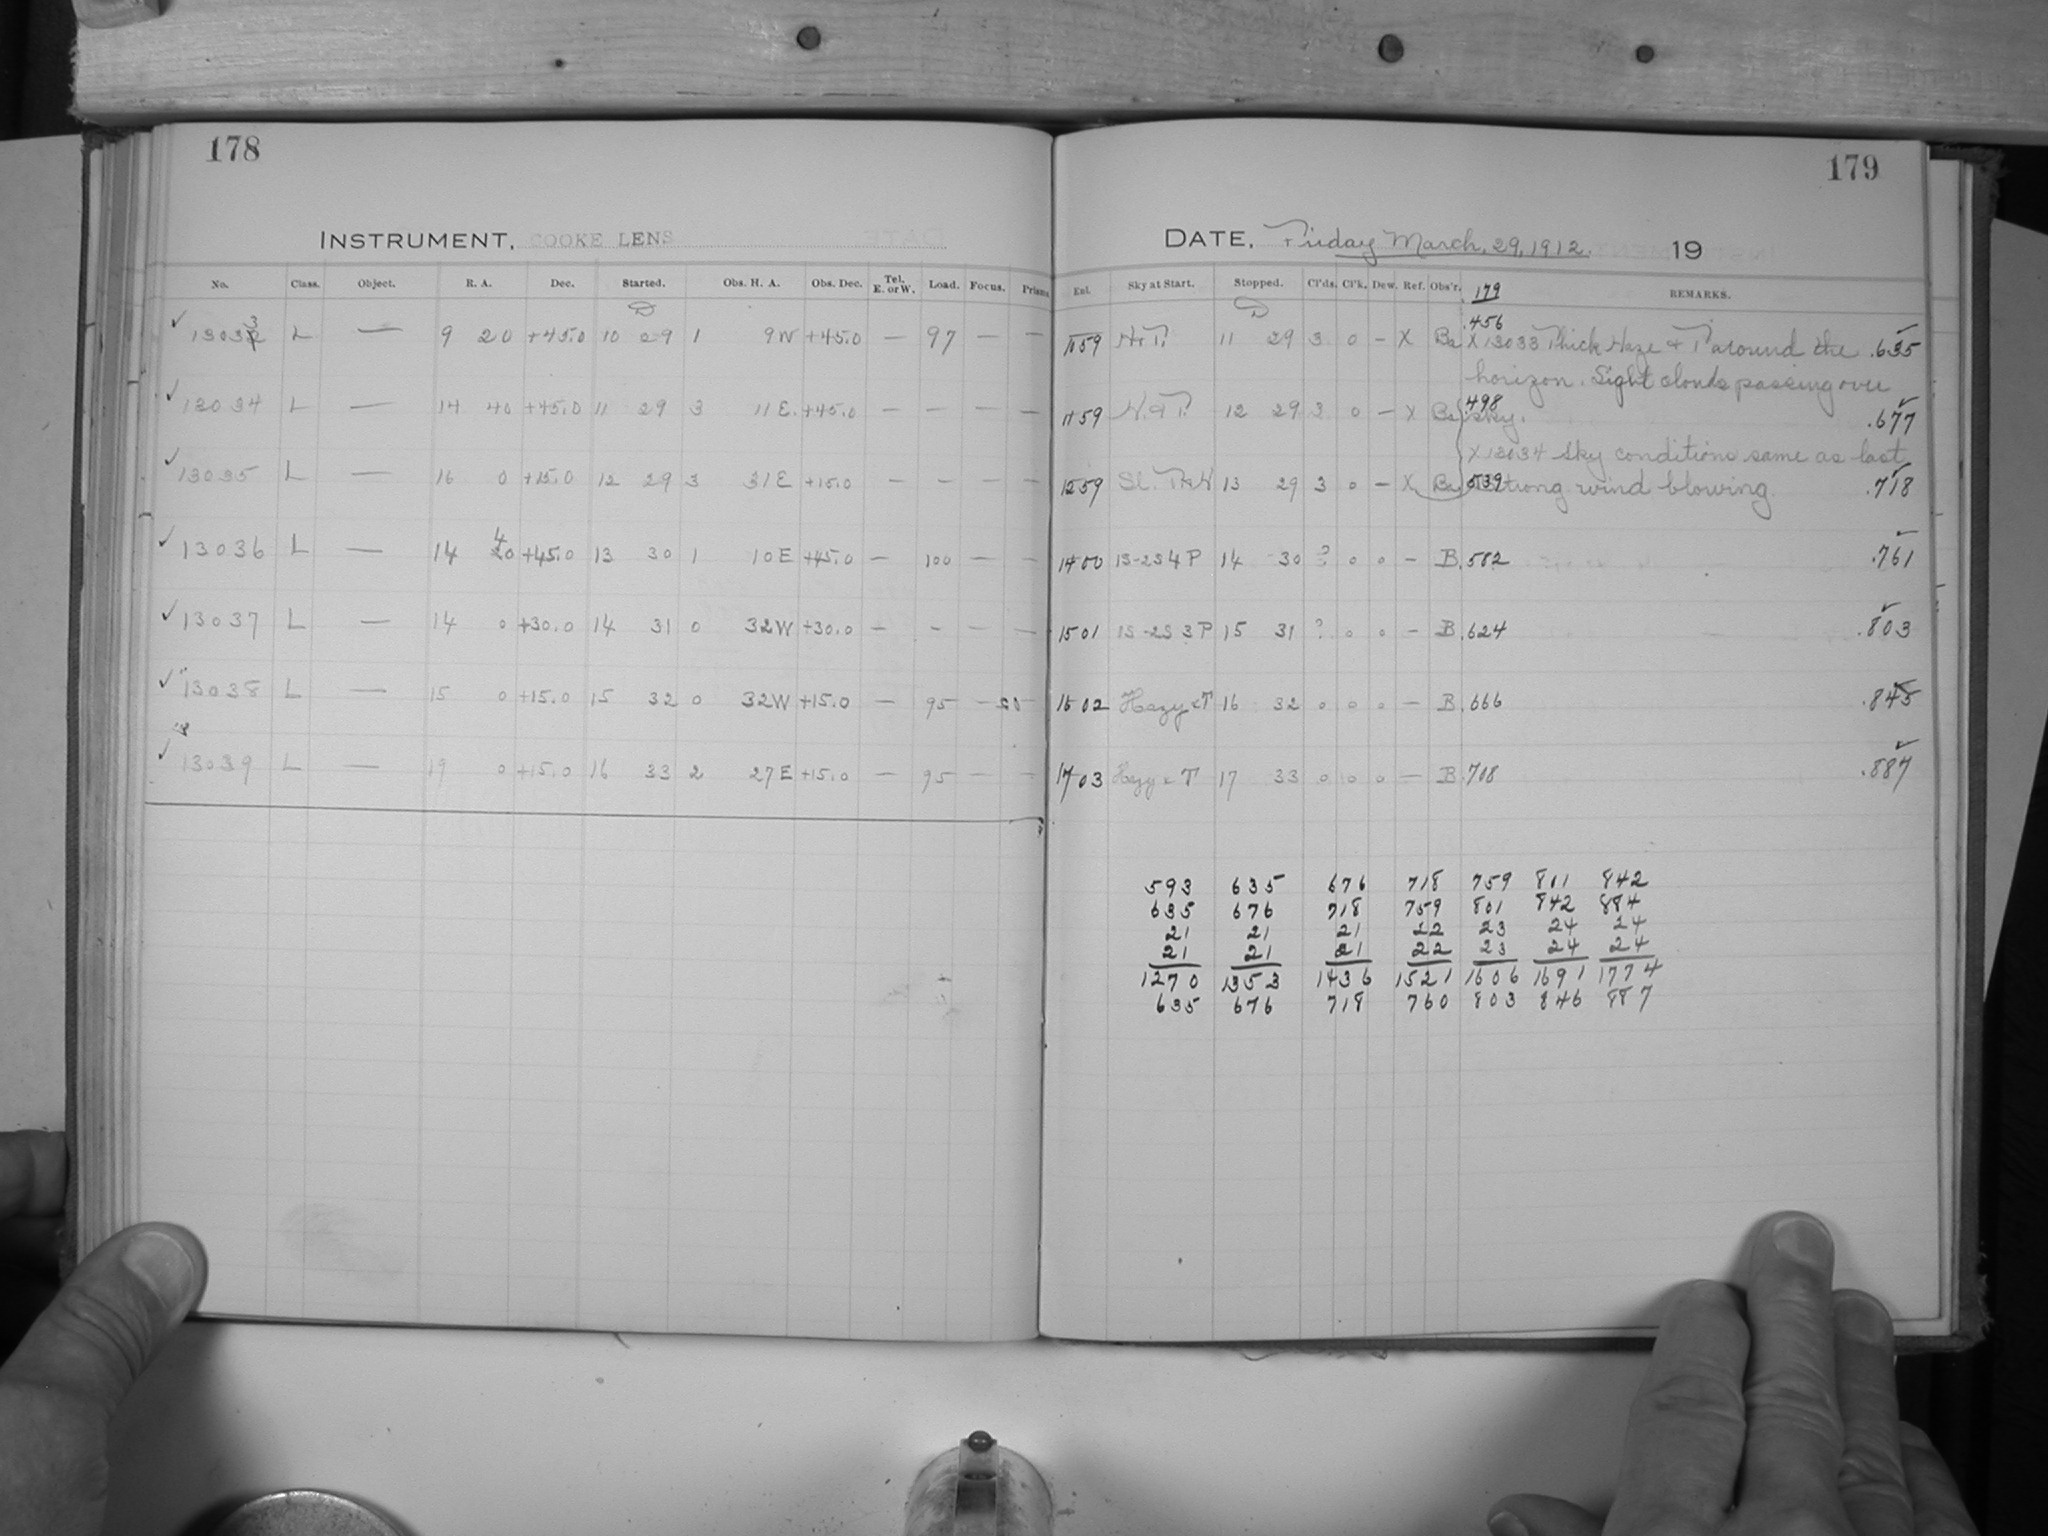 178
INSTRUMENT, COOKE LENS
No. Class. Object. R. A. Dec. Started. Obs. H. A. Obs. Dec. Tel. E. or W. Load. Focus. Prisms
✓ 13033 L — 9 20 +45.0 10 29 1 9W +45.0 — 97 — —
✓ 13034 L — 14 40 +45.0 11 29 3 11E. +45.0 — — — —
✓ 13035 L — 16 0 +15.0 12 29 3 31E +15.0 — — — —
✓ 13036 L — 14 40 +45.0 13 30 1 10E +45.0 — 100 — —
✓ 13037 L — 14 0 +30.0 14 31 0 32W +30.0 — — — —
✓ 13038 L — 15 0 +15.0 15 32 0 32W +15.0 — 95 —
✓ 13039 L — 19 0 +15.0 16 33 2 27E +15.0 — 95 — —
179
DATE, Friday March, 29, 1912. 19
Exl. Sky at Start. Stopped. Cl'ds. Cl'k. Dew. Ref. Obs'r. 179 REMARKS.
1059 H+T. 11 29 3 0 — X Ba .456 X 13033 Thick Haze + T around the .635
horizon. Light clouds passing over
1159 H.+T. 12 29 3 0 — X Ba .498 sky. .677
X 13034 Sky conditions same as last
1259 Sl. T+H 13 29 3 0 — X Ba 539 Strong wind blowing. .718
1400 1S-2S4P 14 30 ? 0 0 — B .582 .761
1501 1S-2S3P 15 31 ? 0 0 — B .624 .803
1602 Hazy+T 16 32 0 0 0 — B .666 .845
1703 Hazy+T 17 33 0 0 0 — B .708 .887
593 635 676 718 759 801 842
635 676 718 759 801 842 884
21 21 21 22 23 24 24
21 21 21 22 23 24 24
1270 1353 1436 1521 1606 1691 1774
635 676 718 760 803 846 887